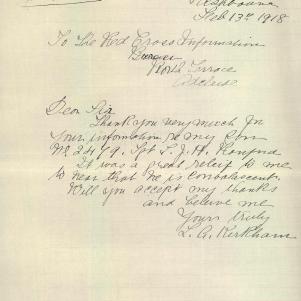 Feb 13th 1918
To The Red Cross Information
Bureau
North Terrace
Adelaide
Dear Sir
Thank you very much for
your information re my Son
No 2479. Spr L. J. H.
It was a great relief to me
to hear that he is convalescent.
Will you accept my thanks
and believe me
Yours truly
L. A. Kirkham